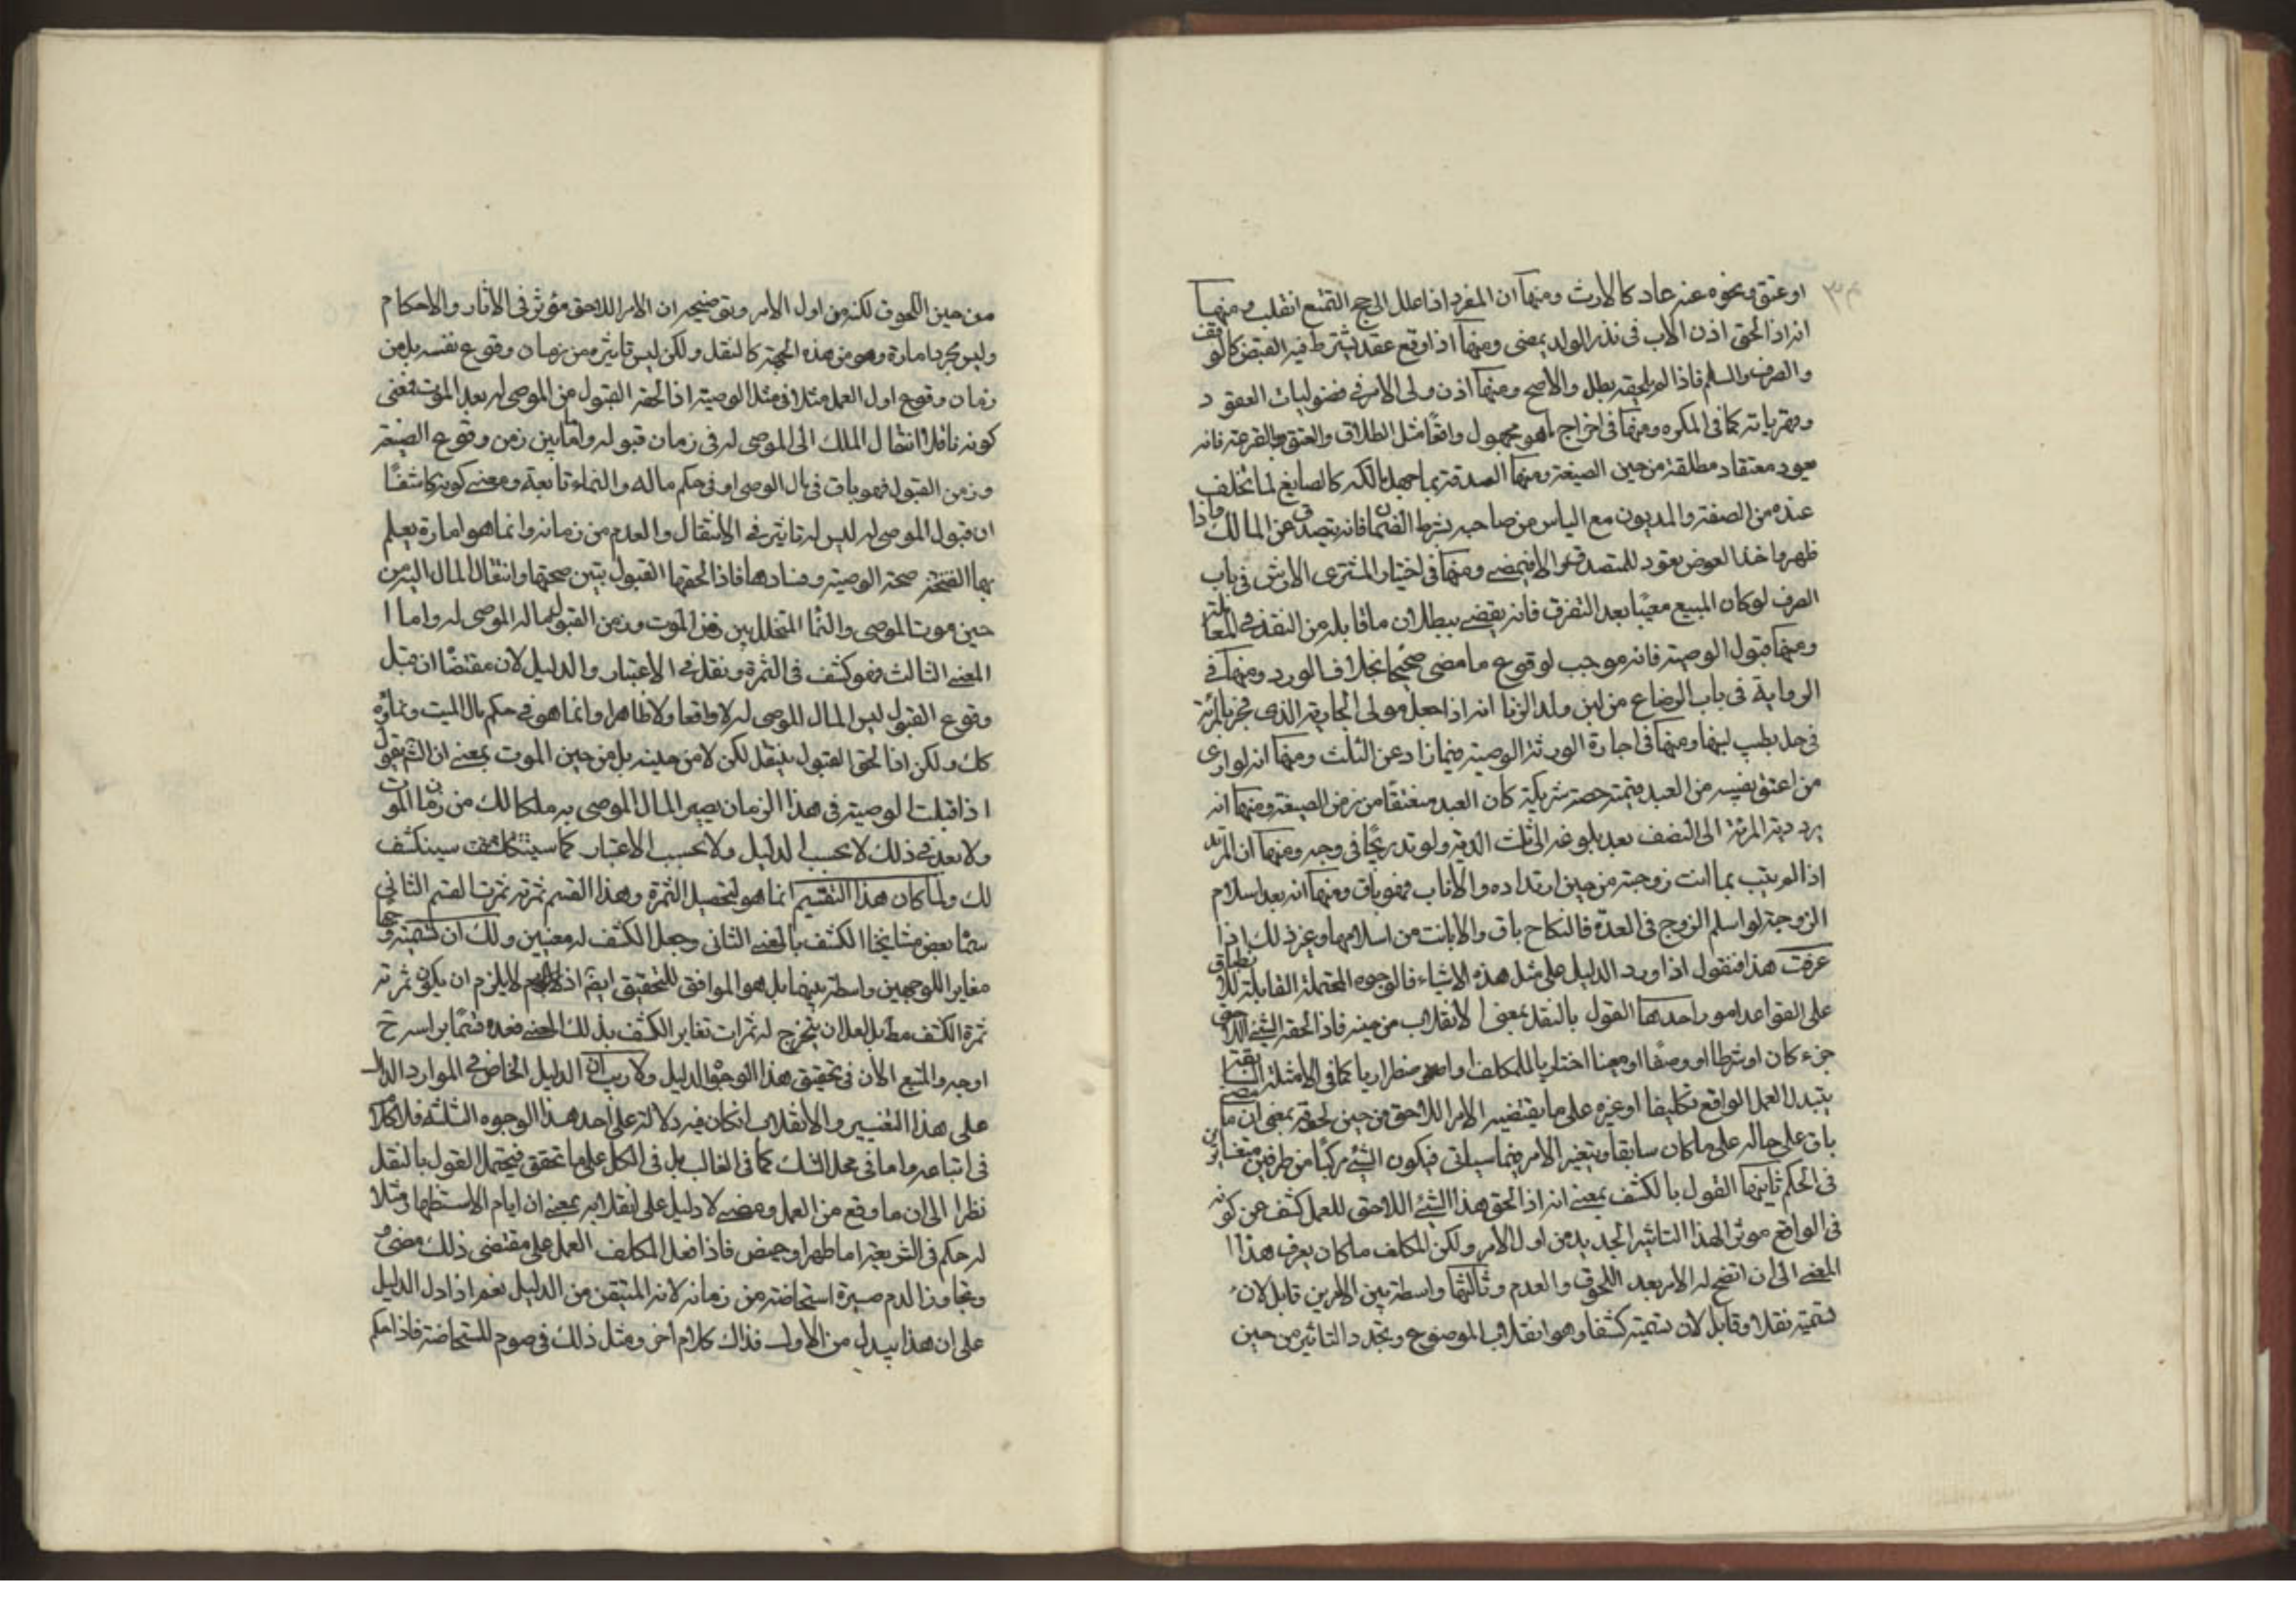 او عتق ونحوه عنه عاد كالارث ومنها ان المفرد اذا عدل الى حج التمتع انقلب ومنها
انه اذا لحق اذن الاب فى نذر الولد يمضى ومنها اذا وقع عقد يشترط فيه القبض كالوقف
والصرف والسلم فاذا لم يلحقه بطل والا صح ومنها اذن ولى الامر فى فضوليات العقود
وقهرياته كما فى المكره ومنها فى اخراج ما هو مجهول واقعا مثل الطلاق والعتق بالقرعة فانه
يعود معتقا ومطلقة من حين الصيغة ومنها الصدقة بما جهل مالكه كالصايغ لما تخلف
عنده من الصفة والمديون مع الياس من صاحبه بشرط الضمان فانه يتصدق عن المالك واذا
ظهر واخذ العوض يعود للمتصدق والا فيمضى ومنها فى اختيار المشترى الارش فى باب
الصرف لو كان المبيع معيبا بعد التفرق فانه يقضى ببطلان ما قابله من النقد فى المعاملة
ومنها قبول الوصية فانه موجب لوقوع ما مضى صحيحا بخلاف الورد ومنها فى
الرواية فى باب الرضاع من لبن ولد الزنا انه اذا جعل مولى الجارية الذى فجر بالمرئة
فى حل يطيب لبنها ومنها فى اجازة الورثة الوصية فيما زاد عن الثلث ومنها انه لو ادى
من اعتق نصيبه من العبد قيمة حصة شريكه كان العبد منعتقا من زمن الصيغة ومنها انه
يرد دية المرئة الى النصف بعد بلوغه الى ثلث الدية ولو تدريجا فى وجه ومنها ان المرتد
اذا لم يتب بانت زوجته من حين ارتداده والا تاب فهو باق ومنها انه بعد اسلام
الزوجة لو اسلم الزوج فى العدة فالنكاح باق والا بانت من اسلامها وغير ذلك اذا
عرفت هذا فنقول اذا ورد الدليل على مثل هذه الاشياء فالوجوه المحتملة القابلة للانطباق
على القواعد امور احدها القول بالنقل بمعنى الانقلاب من حينه فاذا لحقه الشئ اللاحق
جزء كان او شرطا او وصفا او معينا اختاريا للمكلف او اضطراريا كما فى الامثلة السابقة
يتبدل العمل الواقع تكليفا او غيره على ما يقتضيه الامر اللاحق من حين لحوقه بمعنى ان ما مضى
باق على حاله على ما كان سابقا ويتغير الامر فيما سياتى فيكون الشئ مركبا من طرفين متغايرين
فى الحكم ثانيها القول بالكشف بمعنى انه اذا لحق هذا الشئ اللاحق للعمل كشف عن كونه
فى الواقع موثرا لهذا التاثير الجديد من اول الامر ولكن المكلف ما كان يعرف هذا
المعنى الى ان اتضح له الامر بعد اللحوق والعدم وثالثها واسطة بين الامرين قابل لان
تسميته نقلا وقابل لان تسميته كشفا وهو انقلاب الموضوع وتجدد التاثير من حين
من حين اللحوق لكنه من اول الامر وتوضيحه ان الامر اللاحق مؤثر فى الاثار والاحكام
وليس مجرد امارة وهو من هذه الجهة كالنقل ولكن ليس تاثيره من زمان وقوع نفسه بل من
زمان وقوع اول العمل مثلا فى مثل الوصية اذا لحقه القبول من الموصى له بعد الموت فمعنى
كونه ناقلا انتقال الملك الى الموصى له فى زمان قبوله واما بين زمن وقوع الصيغة
وزمن القبول فهو باق فى مال الموصى او فى حكم ماله والنماء تابعة ومعنى كونه كاشفا
ان قبول الموصى له ليس له تاثير فى الانتقال والعدم من زمانه وانما هو امارة يعلم
بها صحة الوصية وفسادها فاذا لحقها القبول تبين صحتها وانتقال المال اليه من
حين موت الموصى والنماء المتخلل بين زمن الموت وزمن القبول مال الموصى له واما
المعنى الثالث فهو كشف فى الثمرة ونقل فى الاعتبار والدليل لان مقتضاه ان قبل
وقوع القبول ليس المال للموصى له لا واقعا ولا ظاهرا وانما هو فى حكم مال الميت ونمائه
كك ولكن اذا لحق القبول ينتقل لكن لا من حينه بل من حين الموت بمعنى ان الشم يقول
اذا قبلت الوصية فى هذا الزمان يصير المال الموصى به ملكا لك من زمان الموت
ولا بعد فى ذلك لا بحسب الدليل ولا بحسب الاعتبار كما سينكشف
لك ولما كان هذا التقسيم انما هو لتحصيل الثمرة وهذا القسم ثمرته ثمرة القسم الثانى
سماه بعض مشايخنا الكشف بالمعنى الثانى وجعل الكشف له معنيين ولك ان تسميته وجها
مغايرا للوجهين واسطة بينهما بل هو الموافق للتحقيق ايضا اذ لا يلزم ان يكون ثمرته
ثمرة الكشف مط بل لعلان يتخرج له ثمرات تغاير الكشف بذلك المعنى فعده قسما براسه ح
اوجه والمتبع الان فى تحقيق هذا التوجه الدليل ولا ريب ان الدليل الخاص فى الموارد الدال
على هذا التغيير والانقلاب ان كان فيه دلالة على احد هذا الوجوه الثلثة فلا كلام
فى اتباعه واما فى محل الشك كما فى الغالب بل فى الكل على ما تحقق فيحتمل القول بالنقل
نظرا الى ان ما وقع من العمل ومضى لا دليل على انقلابه بمعنى ان ايام الاستظهار مثلا
له حكم فى الشريعة اما طهر او حيض فاذا فعل المكلف العمل على مقتضى ذلك مضى
وتجاوز الدم صيره استحاضة من زمانه لانه المتيقن من الدليل نعم اذا دل الدليل
على ان هذا يبدل من الاول فذاك كلام اخر ومثل ذلك فى صوم المستحاضة فاذا حكم